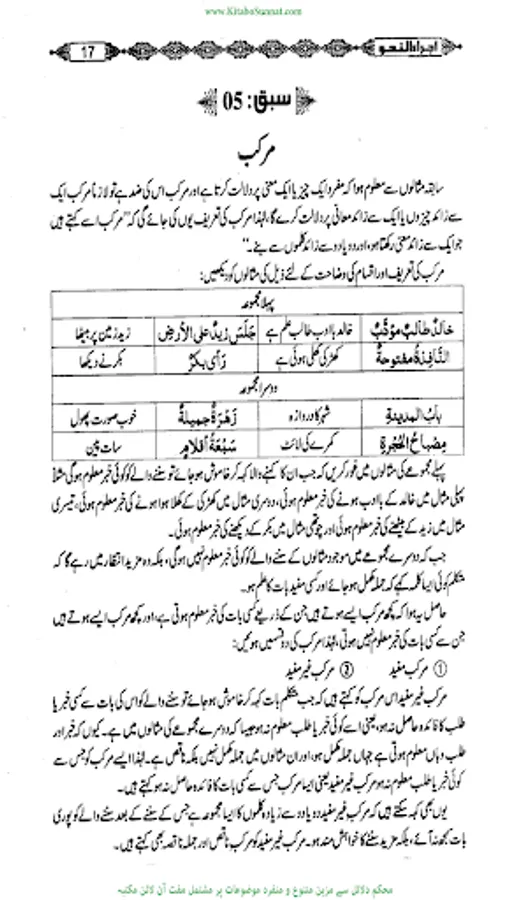 www.KitaboSunnat.com
اجراء النحو
17
سبق: 05
مرکب
سابقہ مثالوں سے معلوم ہوا کہ مفرد ایک چیز یا ایک معنی پر دلالت کرتا ہے اور مرکب اس کی ضد ہے تو لازماً مرکب ایک
سے زائد چیزوں یا ایک سے زائد معانی پر دلالت کرے گا، لہٰذا مرکب کی تعریف یوں کی جائے گی کہ "مرکب اسے کہتے ہیں
جو ایک سے زائد معنی رکھتا ہو، اور دو یا دو سے زائد کلموں سے بنے۔"
مرکب کی تعریف اور اقسام کی وضاحت کے لئے ذیل کی مثالوں کو دیکھیں:
پہلا مجموعہ
خالدٌ طالبٌ مؤدّبٌ خالد با ادب طالب علم ہے جَلَسَ زیدٌ علی الأرضِ زید زمین پر بیٹھا
النَّافِذَةُ مفتوحةٌ کھڑکی کھلی ہوئی ہے رَأی بکرٌ بکر نے دیکھا
دوسرا مجموعہ
بابُ المدینةِ شہر کا دروازہ زَهْرَةٌ جمیلةٌ خوب صورت پھول
مِصباحُ الحُجرةِ کمرے کی لائٹ سَبْعَةُ أقلامٍ سات پین
پہلے مجموعے کی مثالوں میں غور کریں کہ جب ان کا کہنے والا کہہ کر خاموش ہو جائے تو سننے والے کو کوئی خبر معلوم ہو گی مثلاً
پہلی مثال میں خالد کے با ادب ہونے کی خبر معلوم ہوئی، دوسری مثال میں کھڑکی کے کھلا ہوا ہونے کی خبر معلوم ہوئی، تیسری
مثال میں زید کے بیٹھنے کی خبر معلوم ہوئی اور چوتھی مثال میں بکر کے دیکھنے کی خبر معلوم ہوئی۔
جب کہ دوسرے مجموعے میں موجود مثالوں کے سننے والے کو کوئی خبر معلوم نہیں ہو گی، بلکہ وہ مزید انتظار میں رہے گا کہ
متکلم کوئی ایسا کلمہ کہے کہ جملہ مکمل ہو جائے اور کسی مفید بات کا علم ہو۔
حاصل یہ ہوا کہ کچھ مرکب ایسے ہوتے ہیں جن کے ذریعے کسی بات کی خبر معلوم ہوتی ہے، اور کچھ مرکب ایسے ہوتے ہیں
جن سے کسی بات کی خبر معلوم نہیں ہوتی، لہٰذا مرکب کی دو قسمیں ہوئیں:
① مرکب مفید ② مرکب غیر مفید
مرکب غیر مفید اس مرکب کو کہتے ہیں کہ جب متکلم بات کہہ کر خاموش ہو جائے تو سننے والے کو اس کی بات سے کسی خبر یا
طلب کا فائدہ حاصل نہ ہو، یعنی اسے کوئی خبر یا طلب معلوم نہ ہو جیسا کہ دوسرے مجموعے کی مثالوں میں ہے۔ کیوں کہ خبر اور
طلب وہاں معلوم ہوتی ہے جہاں جملہ مکمل ہو، اور ان مثالوں میں جملہ مکمل نہیں بلکہ ناقص ہے۔ لہٰذا ایسے مرکب کو جس سے
کوئی خبر یا طلب معلوم نہ ہو مرکب غیر مفید یعنی ایسا مرکب جس سے کسی بات کا فائدہ حاصل نہ ہو کہتے ہیں۔
یوں بھی کہہ سکتے ہیں کہ مرکب غیر مفید دو یا دو سے زیادہ کلموں کا ایسا مجموعہ ہے جس کے سننے کے بعد سننے والے کو پوری
بات سمجھ نہ آئے، بلکہ مزید سننے کا خواہش مند ہو۔ مرکب غیر مفید کو مرکب ناقص اور جملہ ناقصہ بھی کہتے ہیں۔
محکم دلائل سے مزین متنوع و منفرد موضوعات پر مشتمل مفت آن لائن مکتبہ